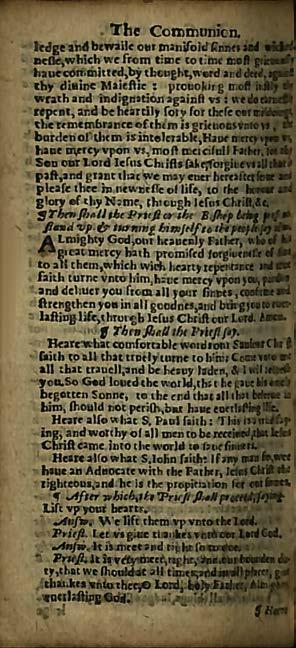 The Communion.
ledge and bewaile our manifold sinnes and
nesse, which we from time to time most
haue committed, by thought, word and deed,
thy diuine Maiestie: prouoking most iustly
wrath and indignation against vs: we do
repent, and be heartily sory for these our
the remembrance of them is grieuous vnto vs,
burden of them is intolerable. Haue mercy vpon vs,
haue mercy vpon vs, most mercifull Father, for thy
Son our Lord Iesus Christs sake, forgiue vs all that is
past, and grant that we may euer hereafter serue and
please thee in newnesse of life, to the honour and
glory of thy Name, through Iesus Christ, &c.
¶ Then shall the Priest or the Bishop being
stand vp, & turning himselfe to the people, say
ALmighty God, our heauenly Father, who of his
great mercy hath promised forgiuenesse of
to all them, which with hearty repentance and true
faith turne vnto him, haue mercy vpon you, pardon
and deliuer you from all your sinnes, confirme and
strengthen you in all goodnes, and bring you to euer-
lasting life, through Iesus Christ our Lord. Amen.
¶ Then shall the Priest say.
Heare what comfortable words our Sauiour Christ
saith to all that truely turne to him: Come vnto me
all that trauell, and be heauy laden, & I will refresh
you. So God loued the world, that he gaue his onely
begotten Sonne, to the end that all that beleeue in
him, should not perish, but haue euerlasting life.
Heare also what S. Paul saith: This is a
ing, and worthy of all men to be receiued, that Iesus
Christ came into the world to saue sinners.
Heare also what S. Iohn saith: If any man sinne, wee
haue an Aduocate with the Father, Iesus Christ the
righteous, and he is the propitiation for our sinnes.
¶ After which, the Priest shall proceed, saying.
Lift vp your hearts.
Answ. We lift them vp vnto the Lord.
Priest. Let vs giue thankes vnto our Lord God.
Answ. It is meet and right so to doe.
Priest. It is very meet, right, and our bounden du-
ty, that we should at all times, and in all places, giue
thankes vnto thee, O Lord, holy Father,
euerlasting God.
¶ Here